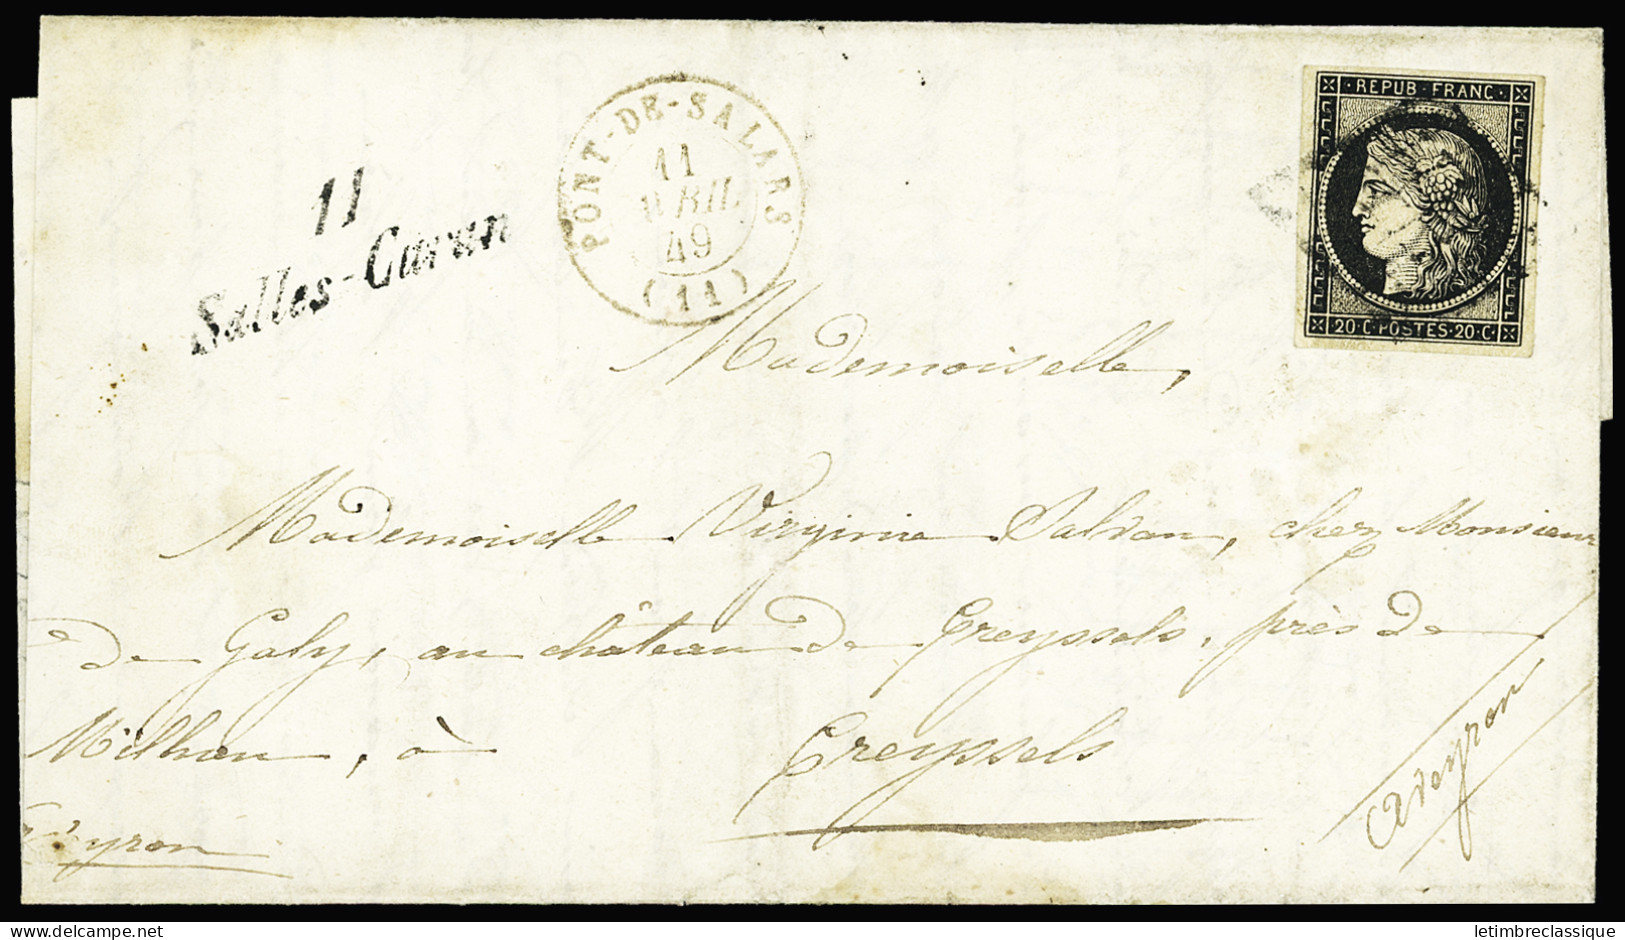 REPUB·FRANC·
20·C·POSTES·20·C·
PONT-DE-SALARS
11
AVRIL
49
(11)
11
Salles-Curan
Mademoiselle,
Mademoiselle Virginie Salvan, chez Monsieur
de Galy, au château de Creyssels, près de
Milhau, à Creyssels
Aveyron
delcampe.net
letimbreclassique